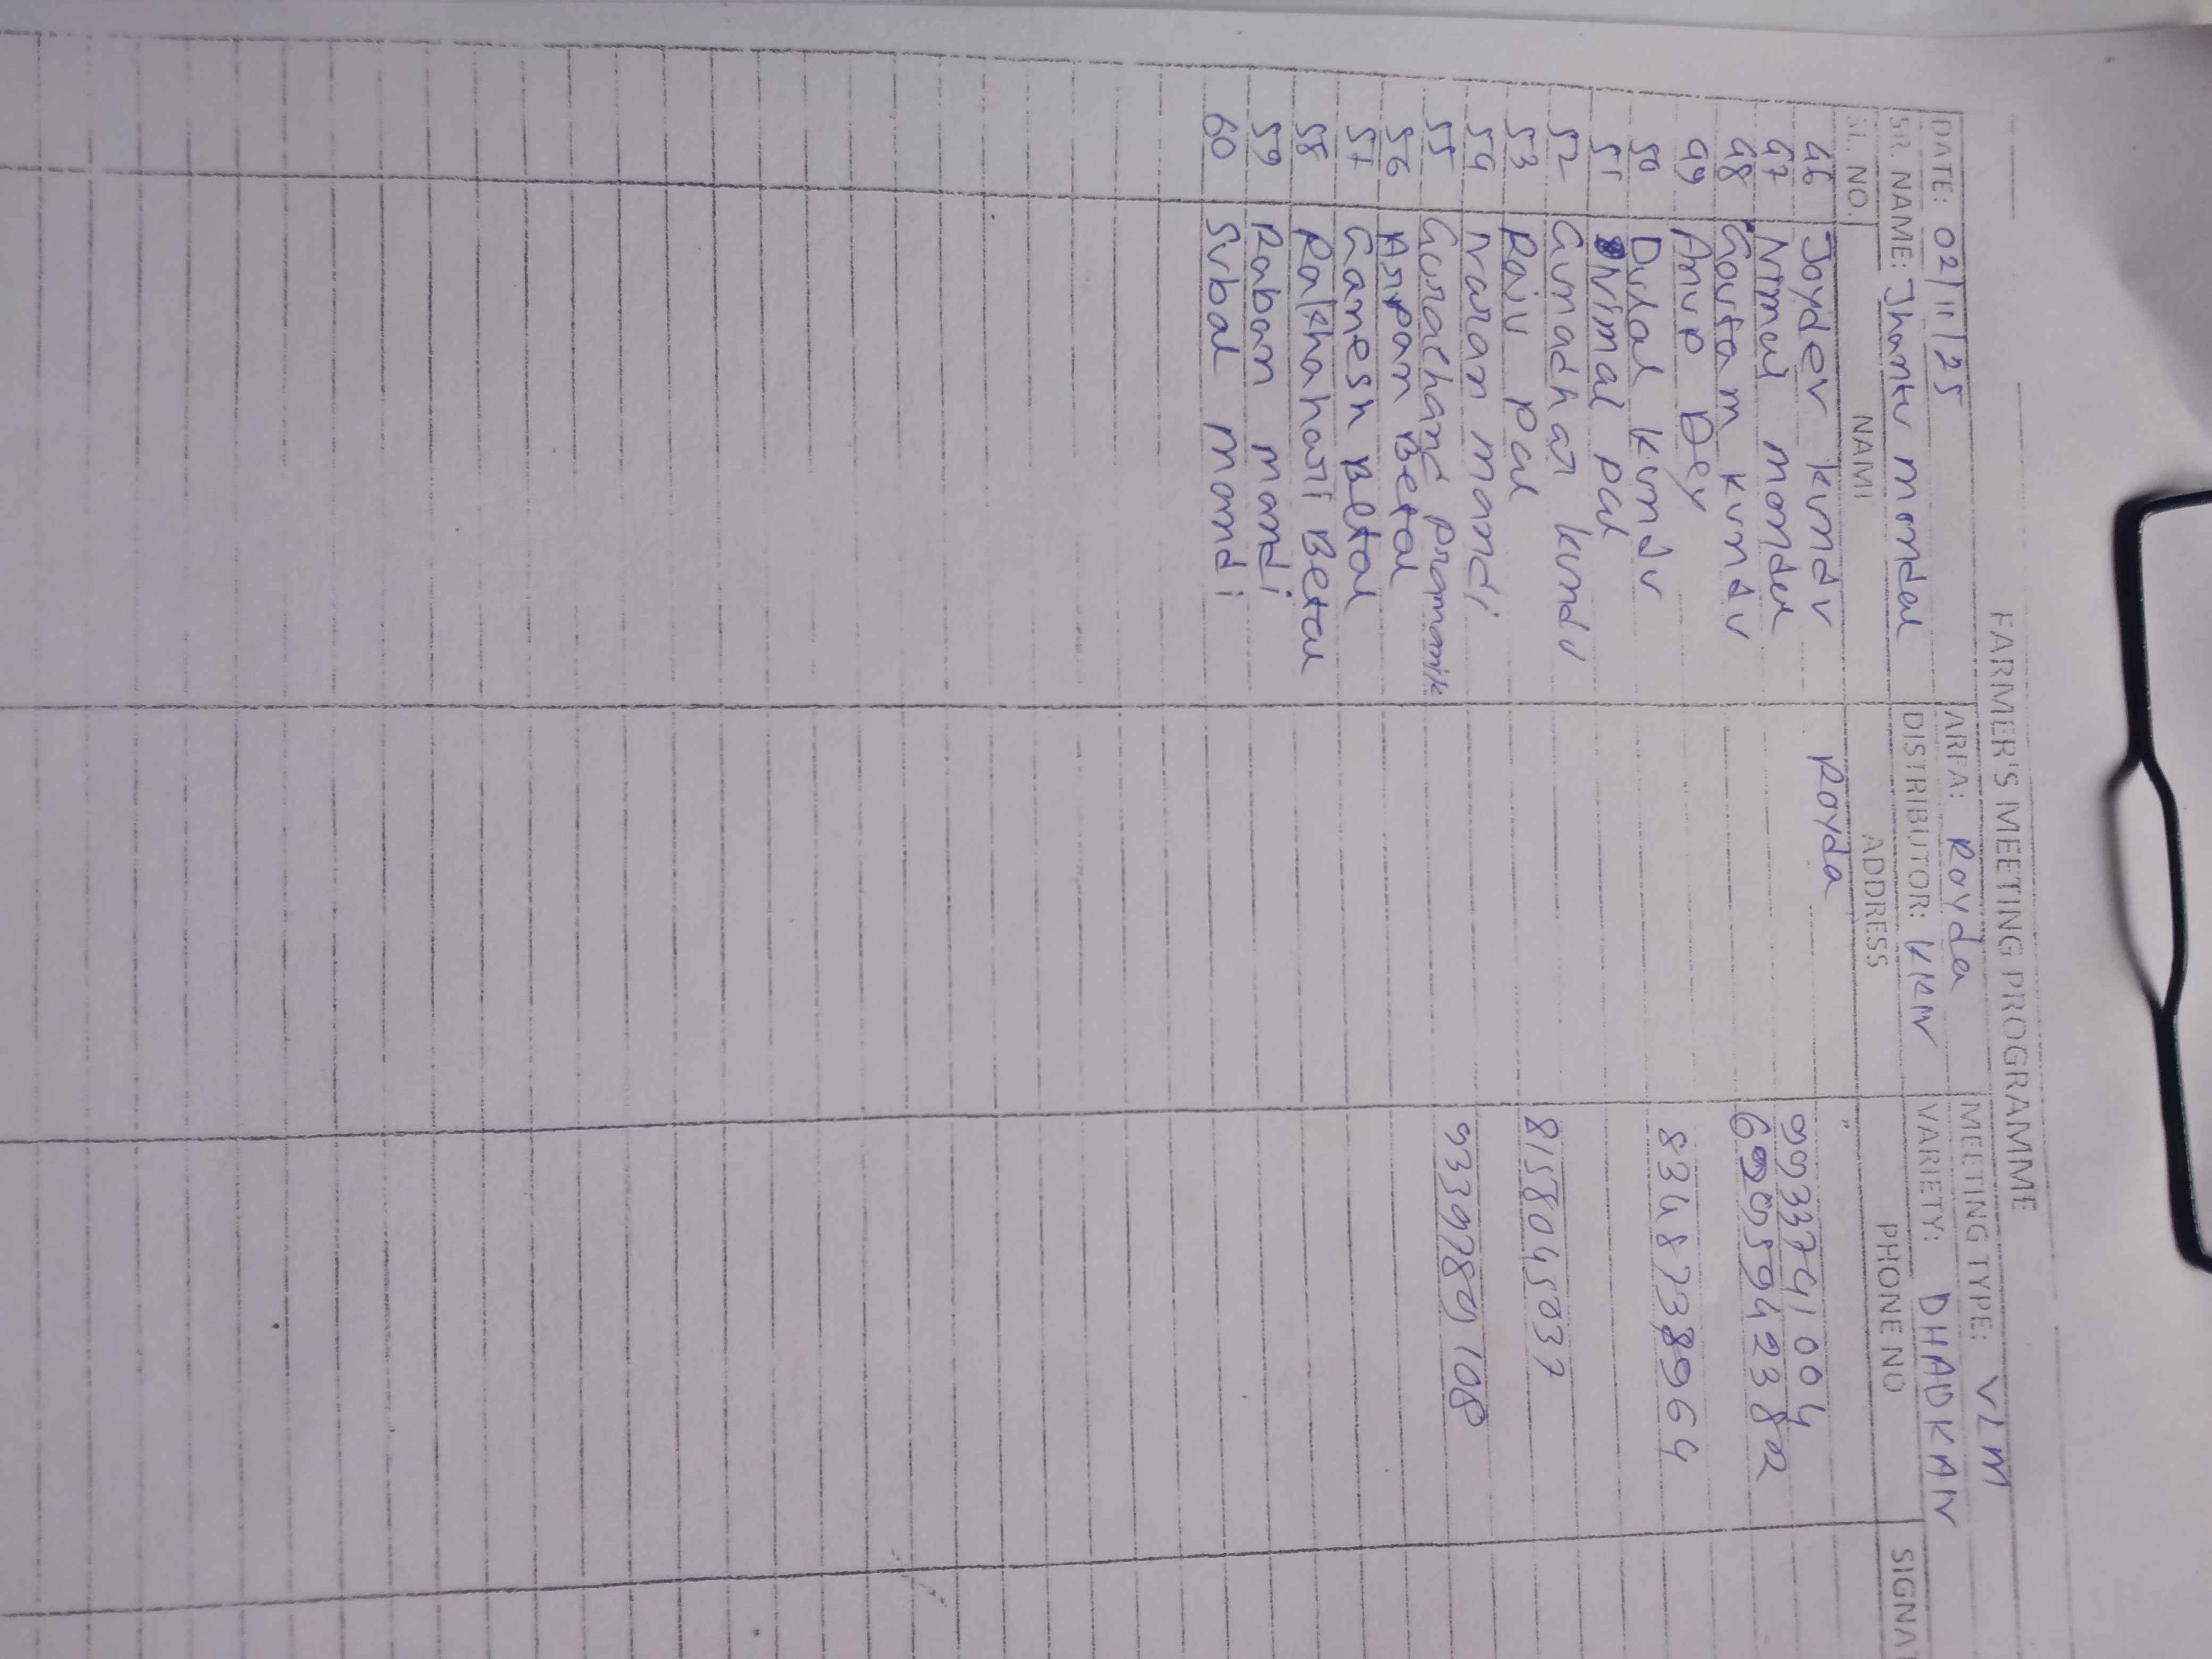 FARMER'S MEETING PROGRAMME
DATE: 02/11/25 AREA: Royda MEETING TYPE: VLM
SR. NAME: Jhantu mondal DISTRIBUTOR: KKN VARIETY: DHADKAN
SL. NO. NAME ADDRESS PHONE NO SIGNA
46 Joydev kundu Royda "
47 Nirmal mondal 9933741004
48 Goutam kundu 6295594238
49 Anup Dey
50 Dulal kundu 8348738964
51 Nirmal pal
52 Gunadhar kundu
53 Raju pal 8158045037
54 Naran mandi
55 Gurachand pramanik 9339789108
56 Arpan Betal
57 Ganesh Betal
58 Rakhahari Betal
59 Raban mandi
60 Subal mandi